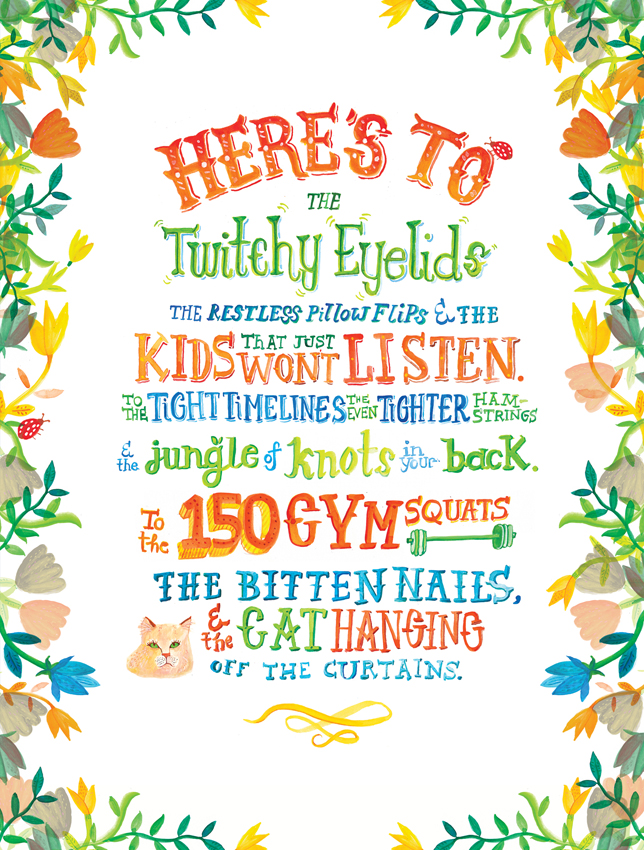 HERE'S TO
THE
Twitchy Eyelids
THE RESTLESS PillOW FLiPS & THE
KIDS THAT JUST WONT LISTEN.
TO THE TIGHT TIMELINES THE EVEN TIGHTER HAM-STRINGS
& the jungle of knots in your back.
To the 150 GYM SQUATS
THE BITTEN NAILS,
& the CAT HANGING
OFF THE CURTAINS.